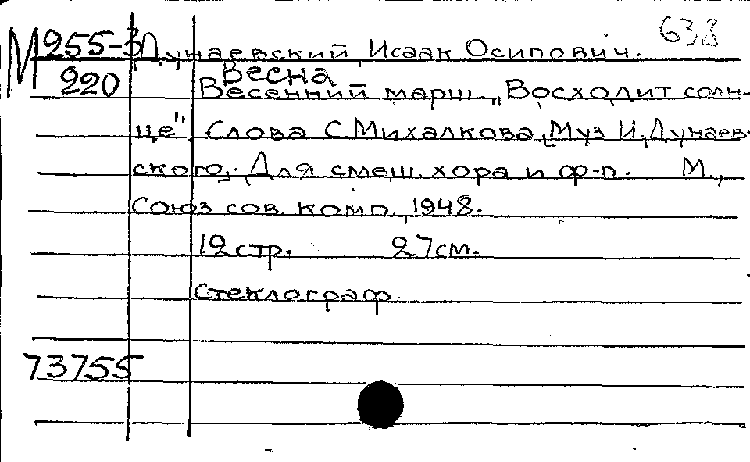 М 255-3 Дунаевский, Исаак Осипович. 638
220 Весна
Весенний марш „Восходит солн-
це". Слова С.Михалкова, Муз. И.Дунаев-
ского. Для смеш. хора и ф-п. М.,
Союз сов. комп., 1948.
12 стр. 27 см.
Стеклограф
73755